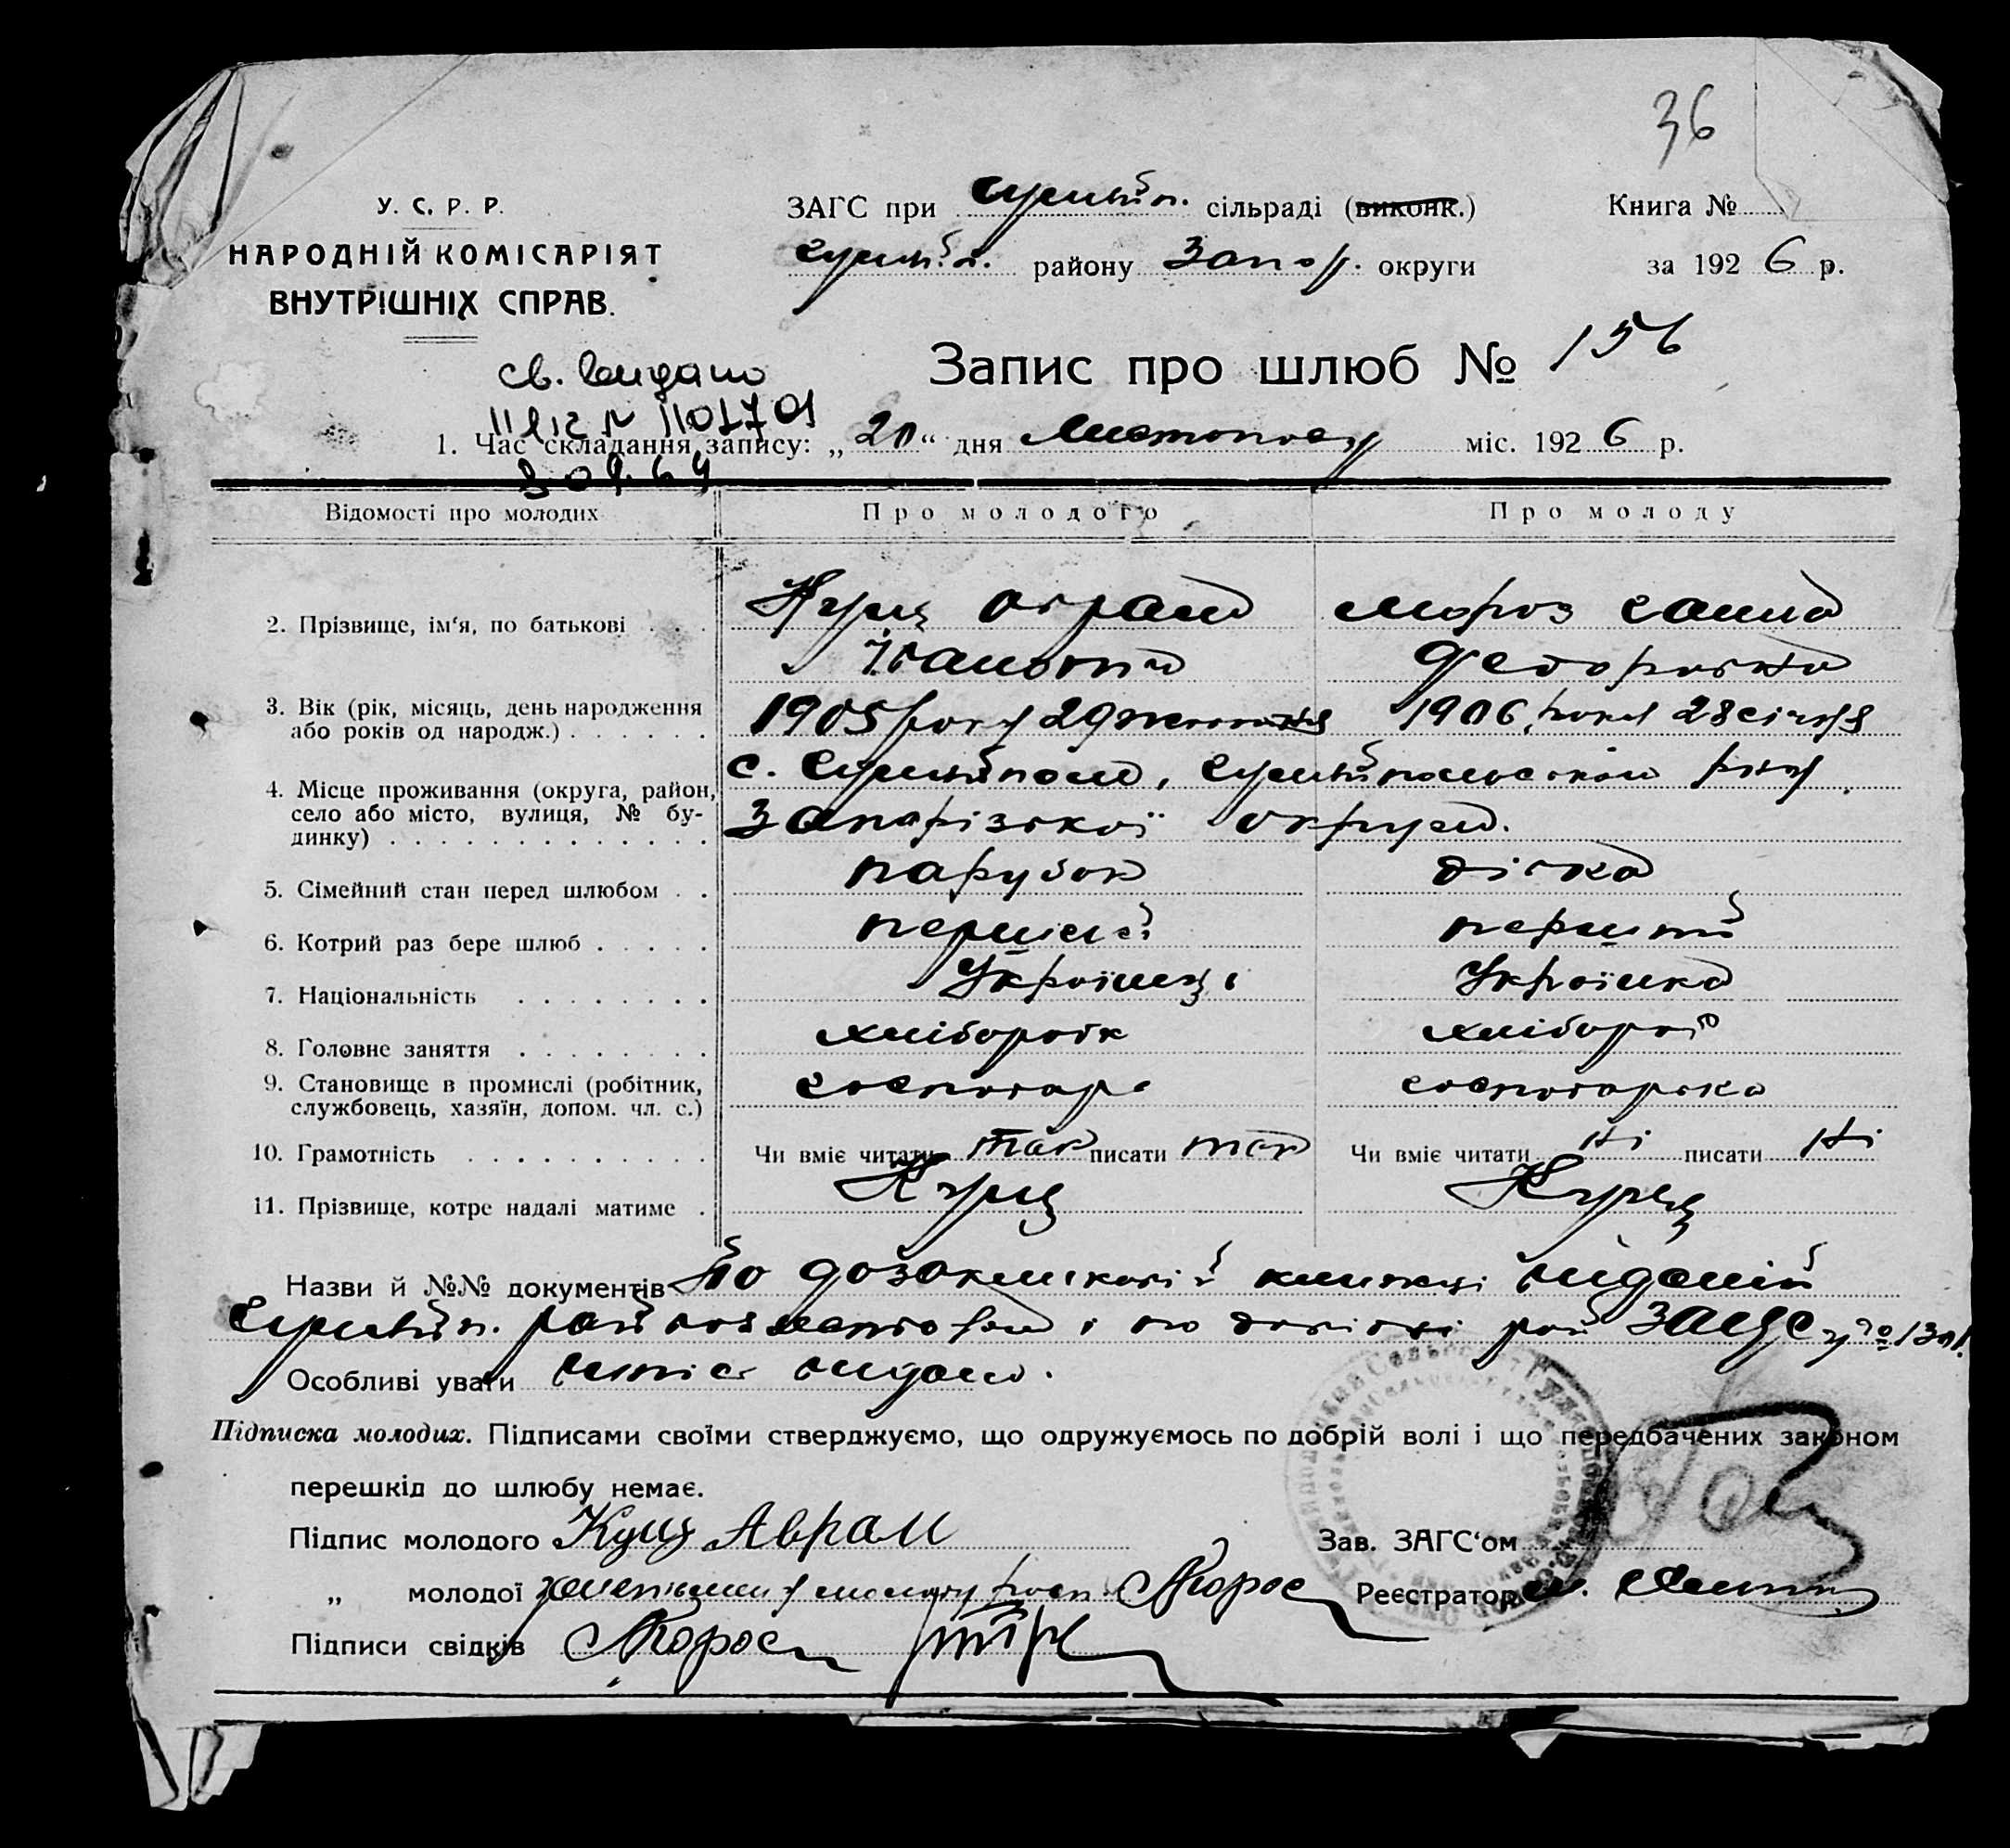 36
У. С. Р. Р.
НАРОДНІЙ КОМІСАРІЯТ
ВНУТРІШНІХ СПРАВ.
ЗАГС при Гуляйп. сільраді (виконк.)
Книга №
Гуляйп. району Запор. округи
за 1926 р.
Запис про шлюб № 156
св. видано
1. Час складання запису: „20“ дня Листопаду міс. 1926 р.
Відомості про молодих
Про молодого
Про молоду
2. Прізвище, ім‘я, по батькові
Кущ Аврам
Мороз Ганна
Федоровна
3. Вік (рік, місяць, день народження
або років од народж.)
1905 року 29 жовтня
1906 року 28 січня
4. Місце проживання (округа, район,
село або місто, вулиця, № будинку)
с. Гуляйполе, Гуляйпольського р-ну
Запорізької округи.
5. Сімейний стан перед шлюбом
парубок
дівка
6. Котрий раз бере шлюб
перший
перший
7. Національність
Українець
Українка
8. Головне заняття
хлібороб
хлібороб
9. Становище в промислі (робітник,
службовець, хазяїн, допом. чл. с.)
господар
господарка
10. Грамотність
Чи вміє читати так писати так
Чи вміє читати ні писати ні
11. Прізвище, котре надалі матиме
Кущ
Кущ
Назви й №№ документів По допризивній книжці виданій
Гуляйп. рай військкоматом і по довідкі рай ЗАГС
Особливі уваги витяг видано.
Підписка молодих. Підписами своїми стверджуємо, що одружуємось по добрій волі і що передбачених законом
перешкід до шлюбу немає.
Підпис молодого Кущ Аврам
Зав. ЗАГС‘ом
„ молодої неписьменну молоду розп. Мороз
Реєстратор
Підписи свідків Мороз